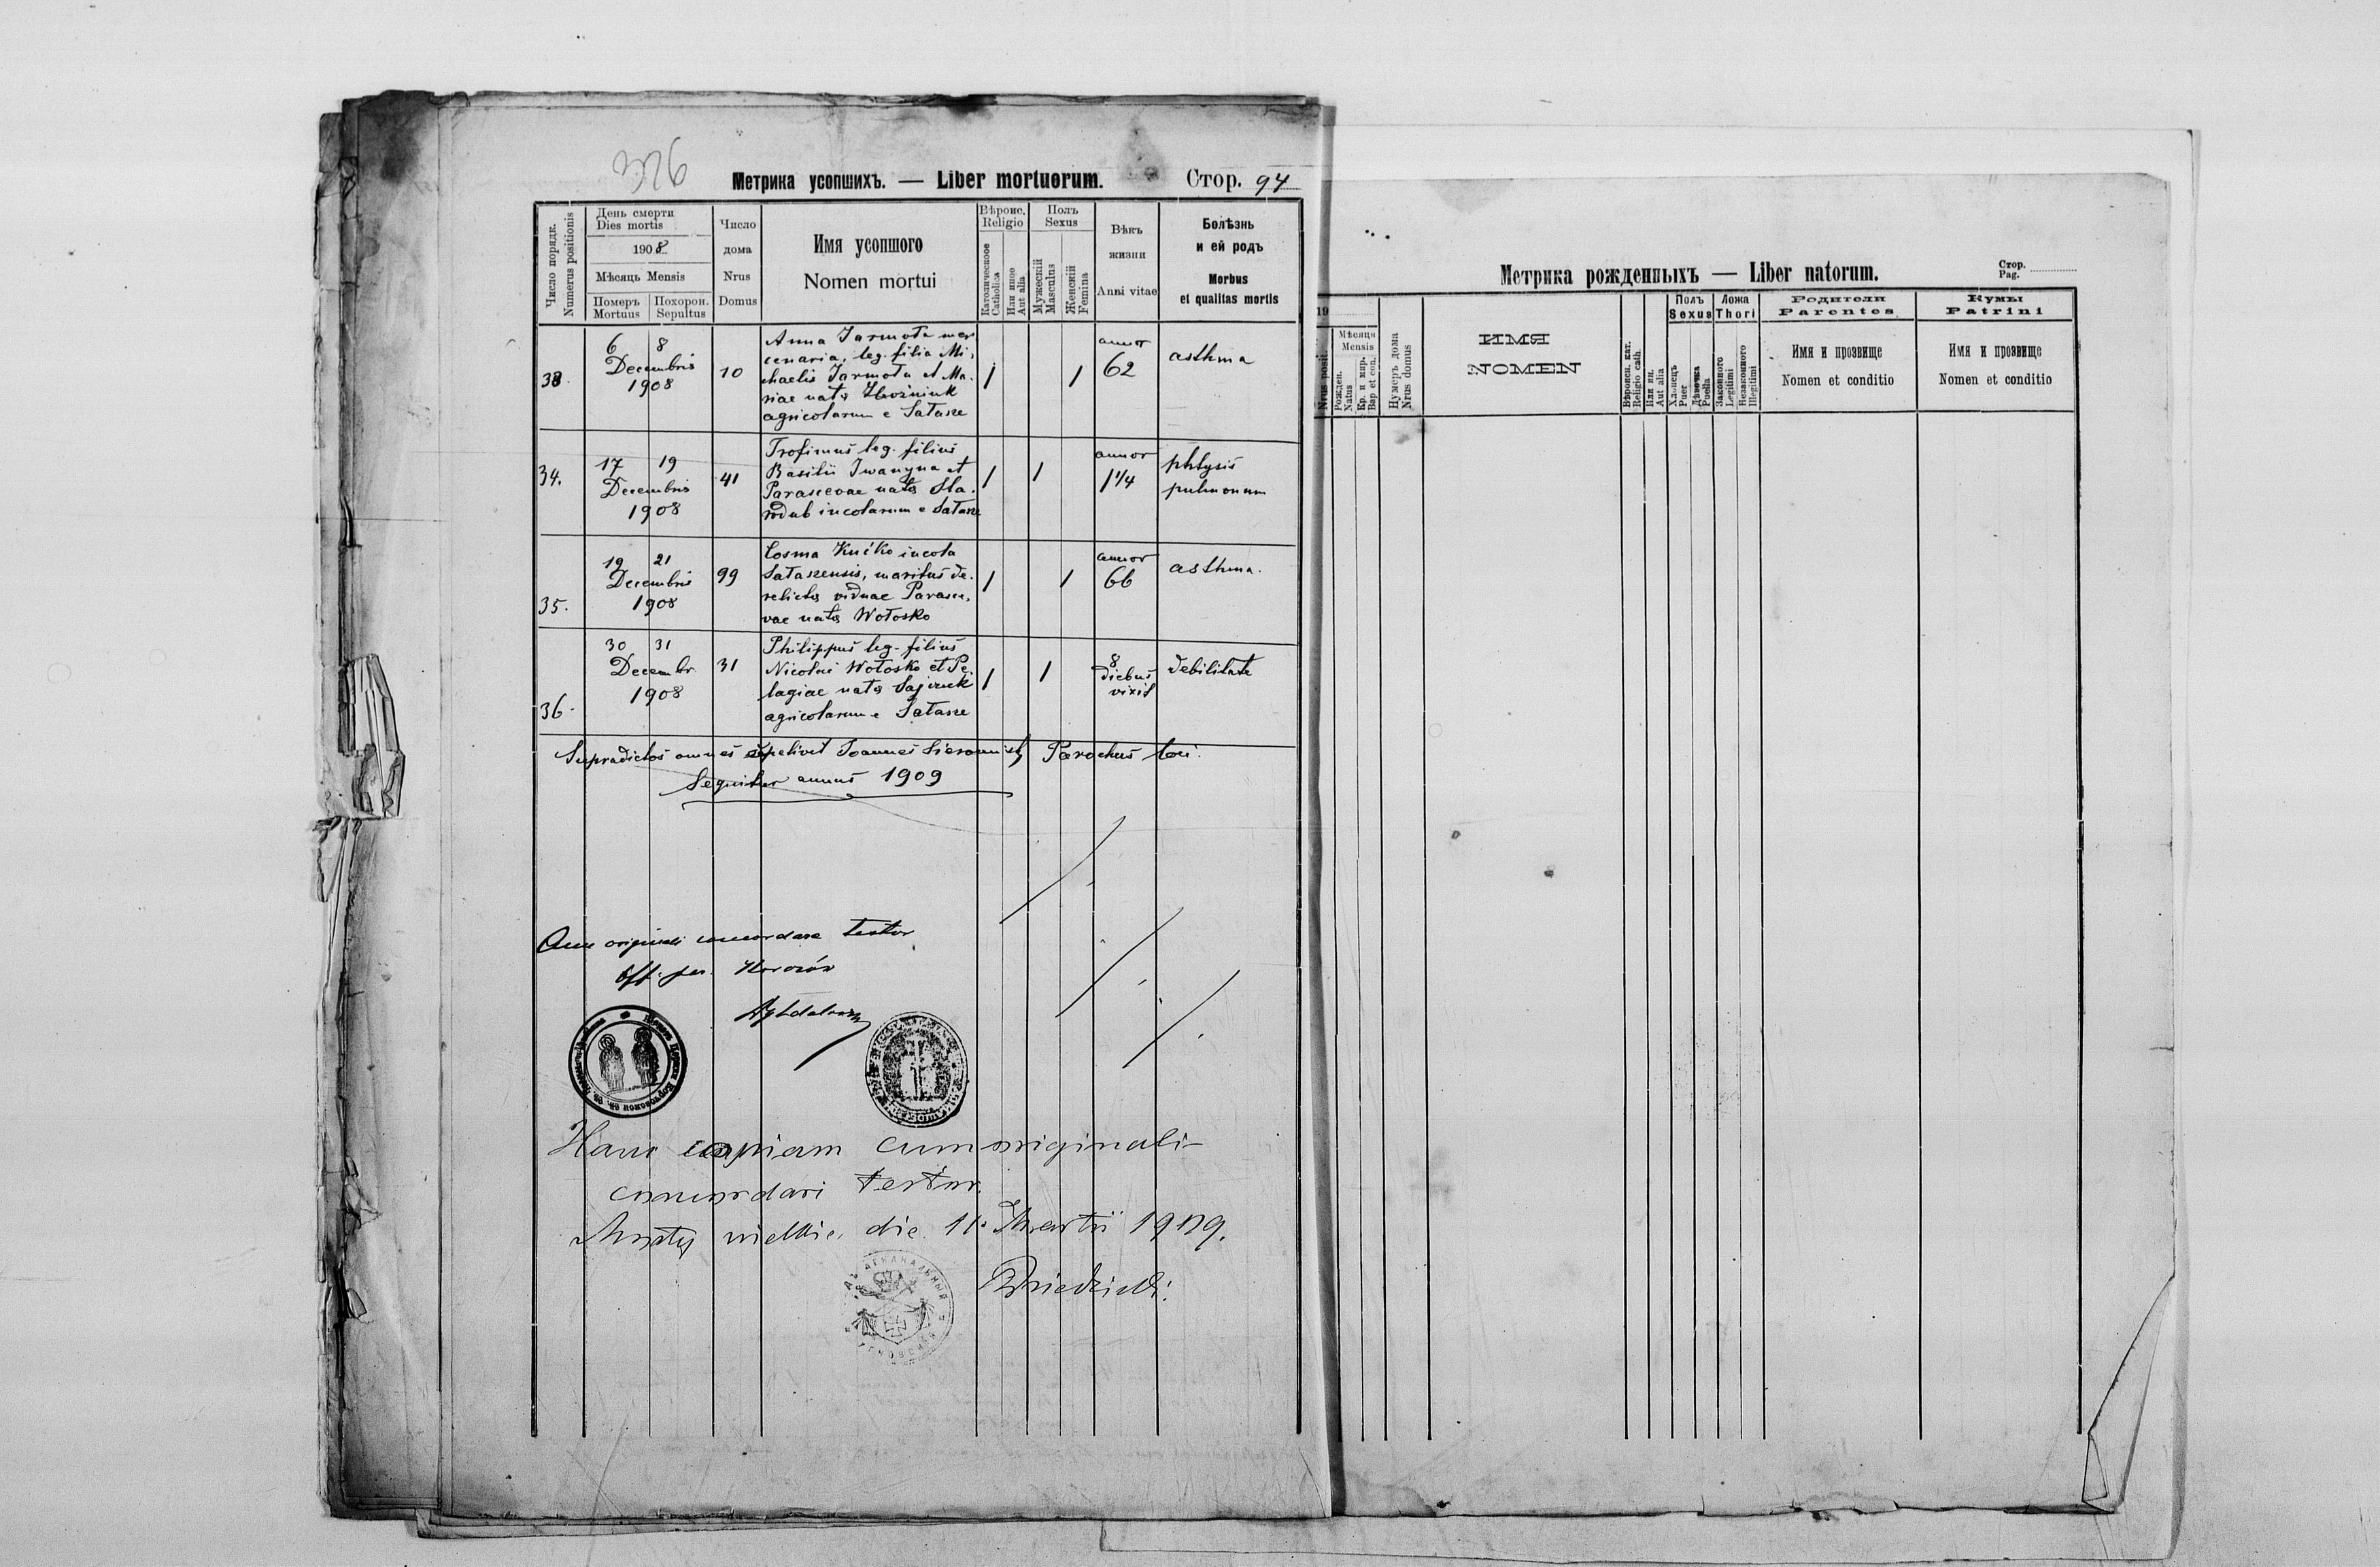 326
Метрика усопшихъ. — Liber mortuorum.
Стор. 94
Число порядк.
Numerus positionis
День смерти
Dies mortis
1908
Мѣсяць Mensis
Померъ
Mortuus
Похорон.
Sepultus
Число
дома
Nrus
Domus
Имя усопшого
Nomen mortui
Вѣроис.
Religio
Католическое
Catholica
Или иное
Aut alia
Полъ
Sexus
Мужескій
Masculus
Женскій
Femina
Вѣкъ
жизни
Anni vitae
Болѣзнь
и ей родъ
Morbus
et qualitas mortis
33.
6 8
Decembris
1908
10
Anna Jarmota mer
cenaria, leg. filia Mi,
chaelis Jarmota et Ma.
riae nata
agricolarum e Satasze
1
1
annor
62
asthma
34.
17 19
Decembris
1908
41
Trofimus leg. filius
Basilii Iwanyna et
Parascevae nata Sta.
rodub incolarum e
1
1
annor
1 1/4
phtysis
pulmonum
35.
19 21
Decembris
1908
99
Cosma incola
maritus de.
relicta viduae Parasce,
vae nata Wołosko
1
1
annor
66
asthma.
36.
30 31
Decembr
1908
31
Philippus leg. filius
Nicolai Wołosko et Pe.
lagiae nata
agricolarum e
1
1
8
diebus
vixit
debilitate
Supradictos omnes sepelivit Joannes Parochus loci.
Sequitur annus 1909
Cum originali concordare testor
Off. par.
Hanc copiam cum originali
concordari testor.
Mosty wielkie, die 11. Martii 1909.
Метрика рожденныхъ — Liber natorum.
Стор.
Pag.
19
Nrus posit.
Мѣсяця
Mensis
Рожден.
Natus
Кр. и мир.
Bap et con.
Нумеръ дома
Nrus domus
ИМЯ
NOMEN
Вѣроисп. кат.
Religio cath.
Или ин.
Aut alia
Полъ
Sexus
Хлопецъ
Puer
Дѣвочка
Puella
Ложа
Thori
Законного
Legitimi
Незаконного
Illegitimi
Родители
Parentes
Имя и прозвище
Nomen et conditio
Кумы
Patrini
Имя и прозвище
Nomen et conditio